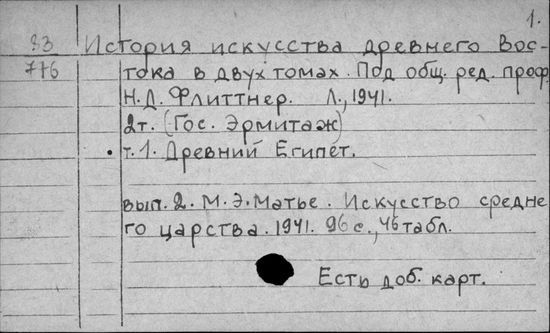 1.
83 История искусства древнего Вос-
776 тока в двух томах. Под общ. ред. проф.
Н.Д. Флиттнер. Л., 1941.
2т. (Гос. Эрмитаж)
• т. 1. Древний Египет.
вып. 2. М.Э. Матье. Искусство средне
го царства. 1941. 96 с., 46 табл.
Есть доб. карт.